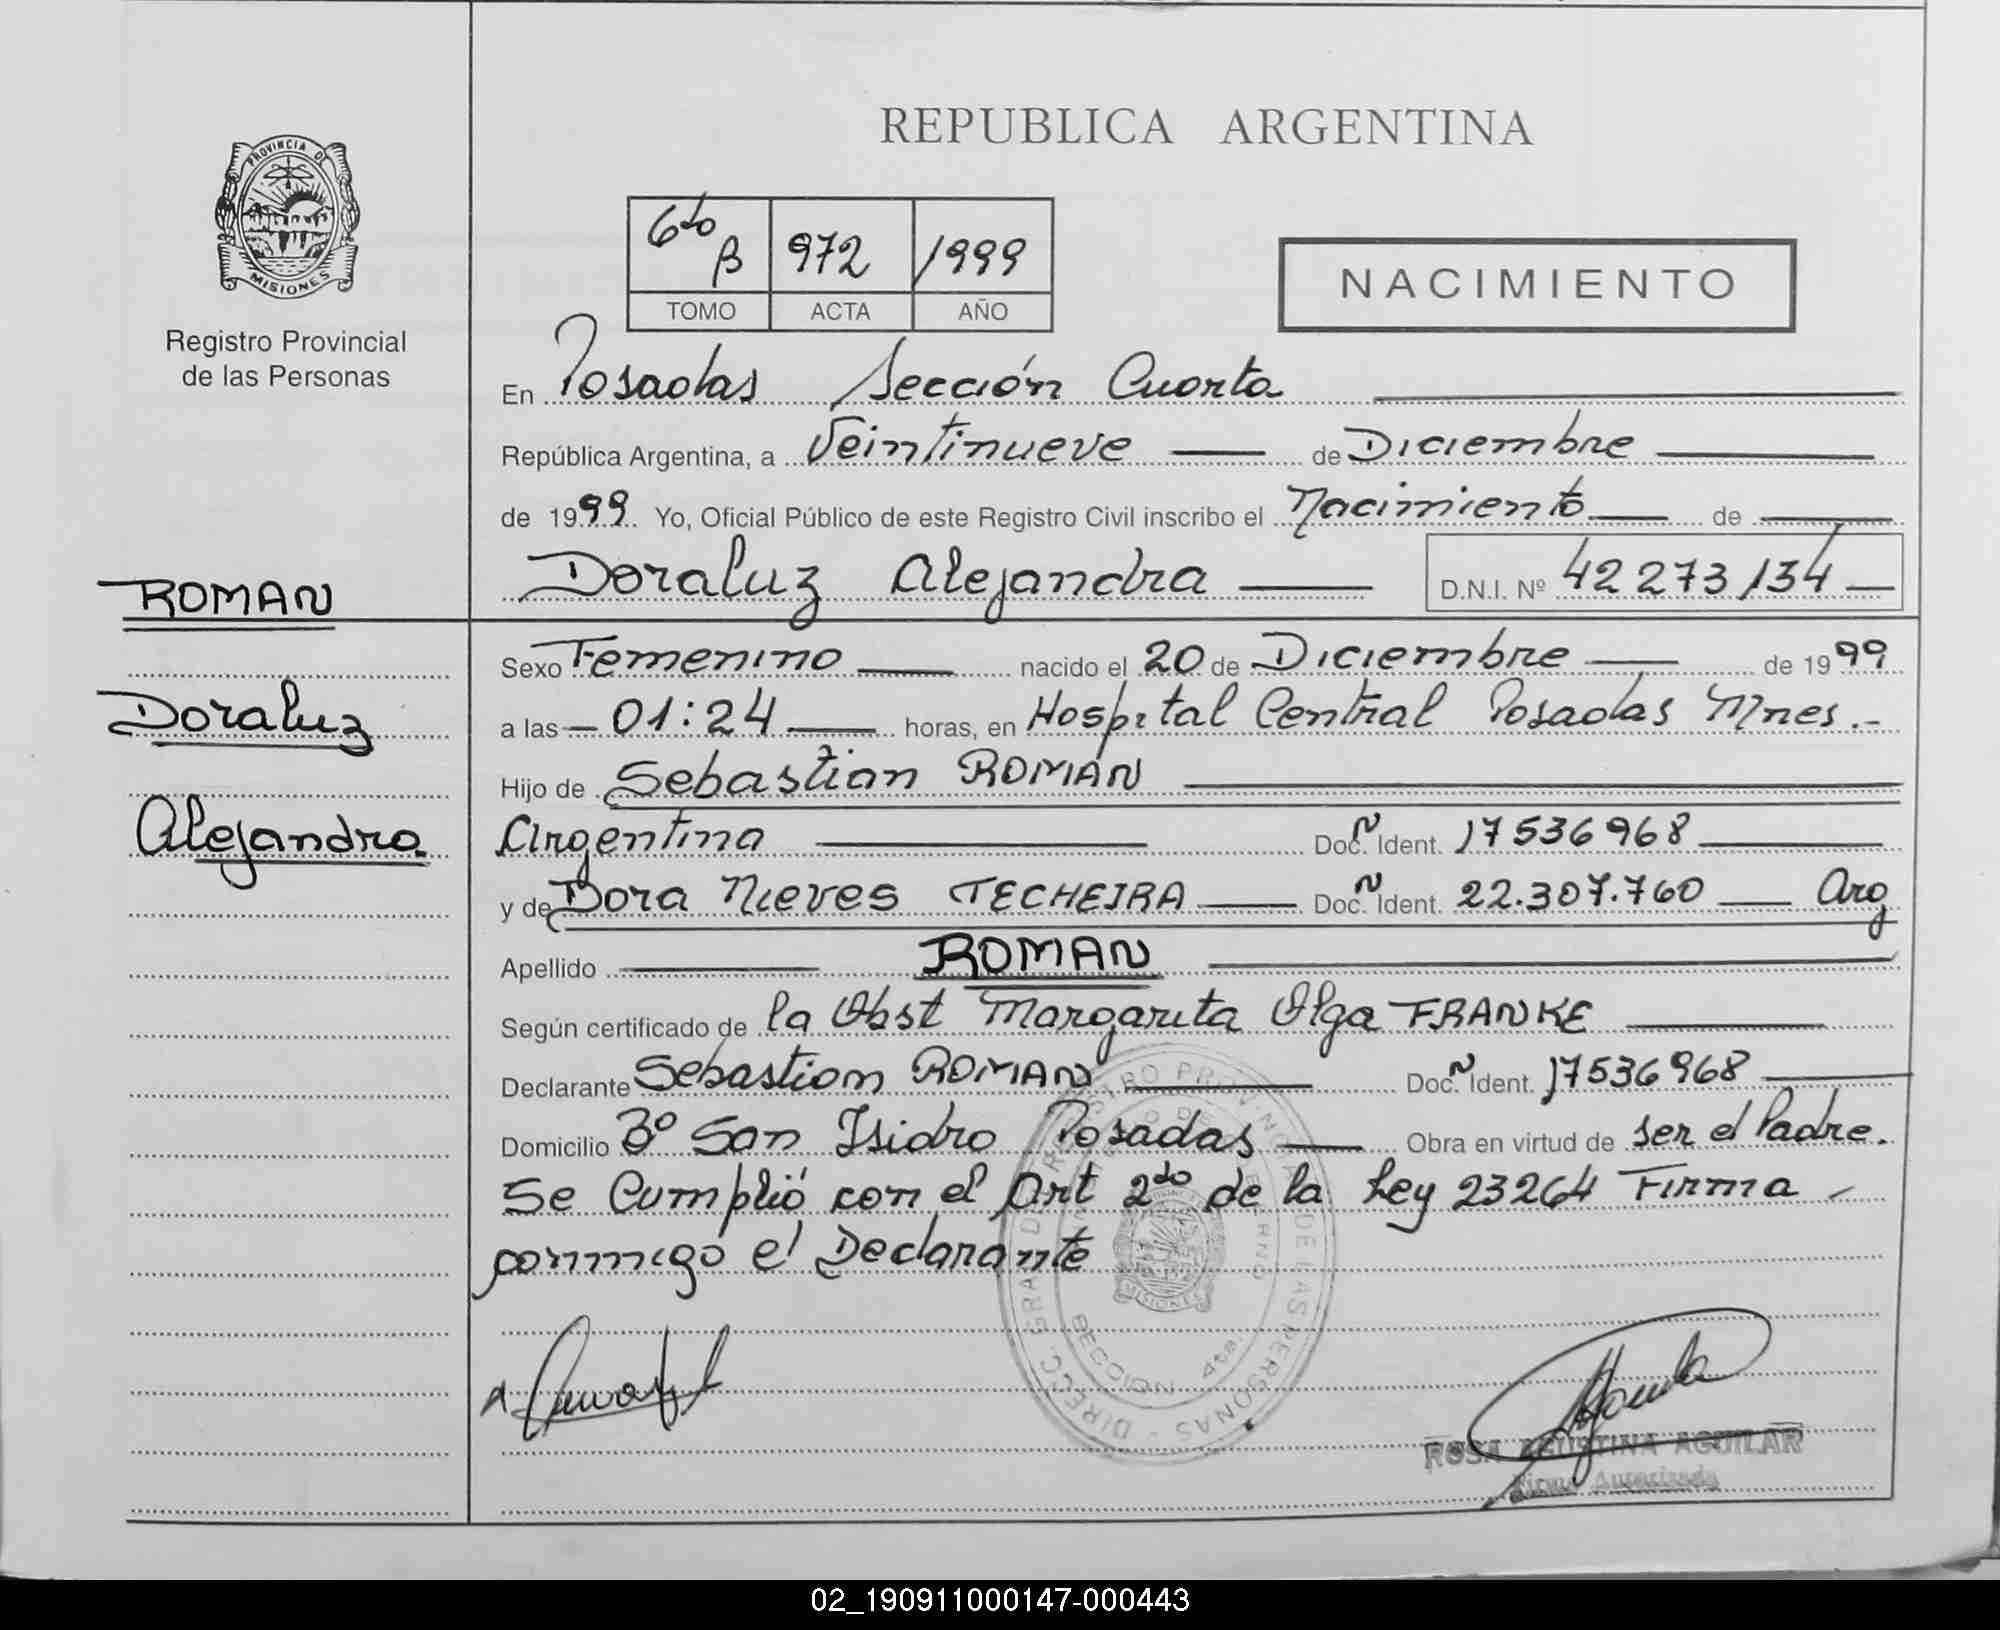 REPUBLICA ARGENTINA
PROVINCIA DE
MISIONES
Registro Provincial
de las Personas
6to B 972 1999
TOMO ACTA AÑO
NACIMIENTO
En Posadas Sección Cuarta
República Argentina, a Veintinueve de Diciembre
de 1999 Yo, Oficial Público de este Registro Civil inscribo el Nacimiento de
Doraluz Alejandra D.N.I. Nº 42273134
ROMAN
Doraluz
Alejandra
Sexo Femenino nacido el 20 de Diciembre de 1999
a las 01:24 horas, en Hospital Central Posadas Mnes.-
Hijo de Sebastian ROMAN
Argentina Doc. Ident. 17536968
y de Dora Nieves TECHEIRA Doc. Ident. 22.307.760 Arg
Apellido ROMAN
Según certificado de la Obst Margarita Olga FRANKE
Declarante Sebastian ROMAN Doc. Ident. 17536968
Domicilio Bº San Isidro Posadas Obra en virtud de ser el Padre.
Se Cumplió con el Art 2do de la Ley 23264 Firma
conmigo el Declarante
DIRECC. GRAL DEL REGISTRO PROVINCIAL DE LAS PERSONAS
SECCION 4ta.
MISIONES
ROSA AGUSTINA AGUILAR
Firma Autorizada
02_190911000147-000443